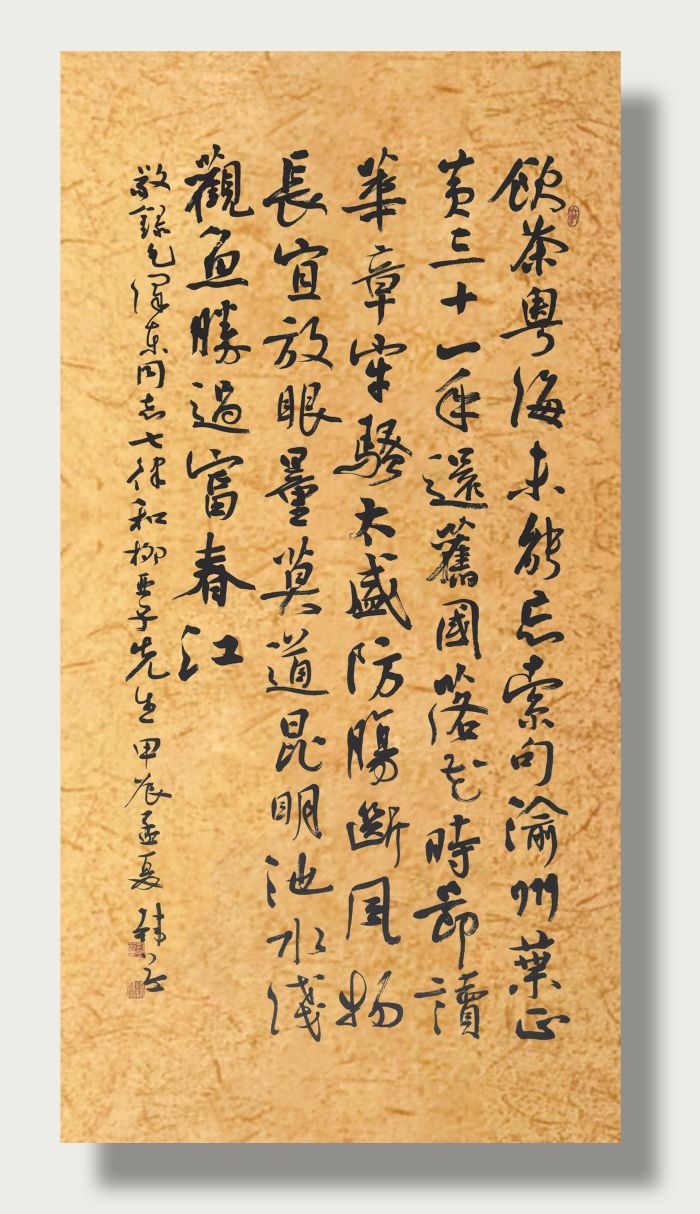 飲茶粵海未能忘索句渝州葉正
黄三十一年還舊國落花時節讀
華章牢騷太盛防腸斷風物
長宜放眼量莫道昆明池水淺
觀魚勝過富春江
敬錄毛澤東同志七律和柳亞子先生甲辰孟夏